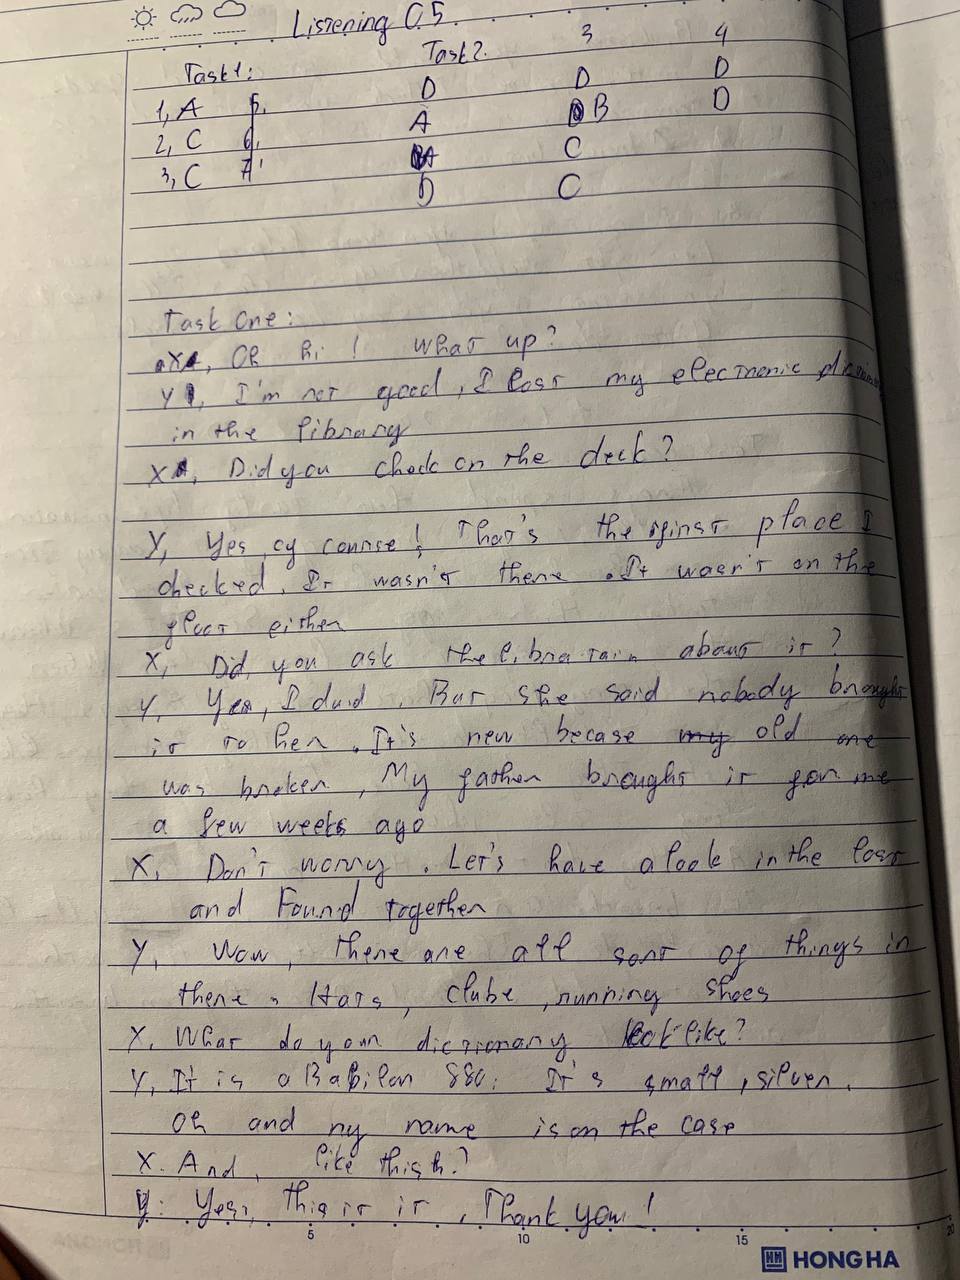 Listening 05.
Task1: Task2. 3 4
1, A 5, D D D
2, C 6, A B D
3, C 7, A C
D C
Task One:
X, Oh hi ! What up?
Y, I'm not good, I lost my electronic
in the library
X, Did you check on the deck?
Y, Yes, of course! That's the first place I
checked. It wasn't there. It wasn't on the
floor either
X, Did you ask the libratain about it?
Y, Yes, I did. But she said nobody brought
it to her. It's new becase my old one
was broken, My father brought it for me
a few weeks ago
X, Don't worry. Let's have a look in the lost
and Found together
Y, Wow, there are all sort of things in
there. Hats, clube, running shoes
X, What do your dictionary look like?
Y, It is a Babilon 880. It's small, silver.
Oh and my name is on the case
X. And, like this?
Y: Yes, this is it, Thank you!
5 10 15 20
HONG HA